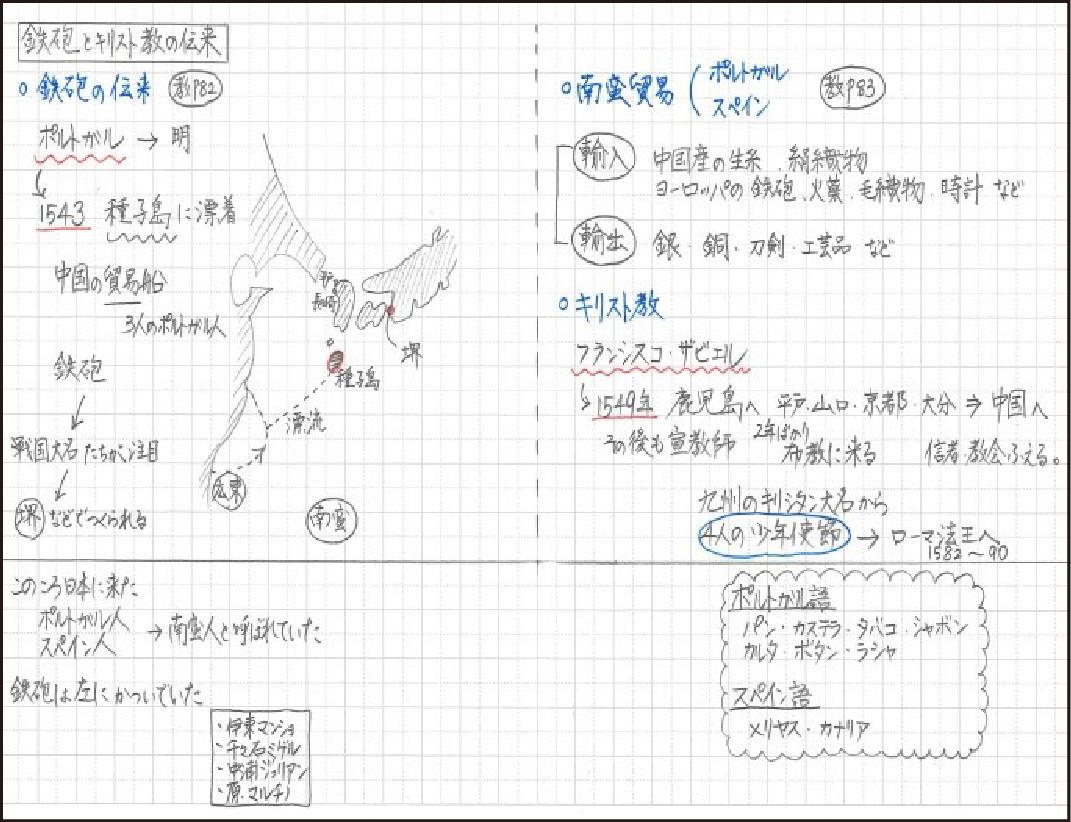 鉄砲とキリスト教の伝来
○鉄砲の伝来 教P82
ポルトガル → 明
1543 種子島に漂着
中国の貿易船
3人のポルトガル人
鉄砲
戦国大名たちが注目
堺などでつくられる
平戸
長崎
堺
種子島
漂流
広東
南蛮
このころ日本に来た
ポルトガル人
スペイン人
→南蛮人と呼ばれていた
鉄砲は左にかついでいた
・伊東マンショ
・千々石ミゲル
・中浦ジュリアン
・原・マルチノ
○南蛮貿易 ( ポルトガル
スペイン
教P83
輸入 中国産の生糸・絹織物
ヨーロッパの鉄砲・火薬・毛織物・時計 など
輸出 銀・銅・刀剣・工芸品 など
○キリスト教
フランシスコ・ザビエル
↳1549年 鹿児島へ 平戸・山口・京都・大分 ⇒ 中国へ
2年ばかり
その後も宣教師 布教に来る 信者・教会ふえる。
九州のキリシタン大名から
4人の少年使節 → ローマ法王へ
1582〜90
ポルトガル語
パン・カステラ・タバコ・シャボン
カルタ・ボタン・ラシャ
スペイン語
メリヤス・カナリア